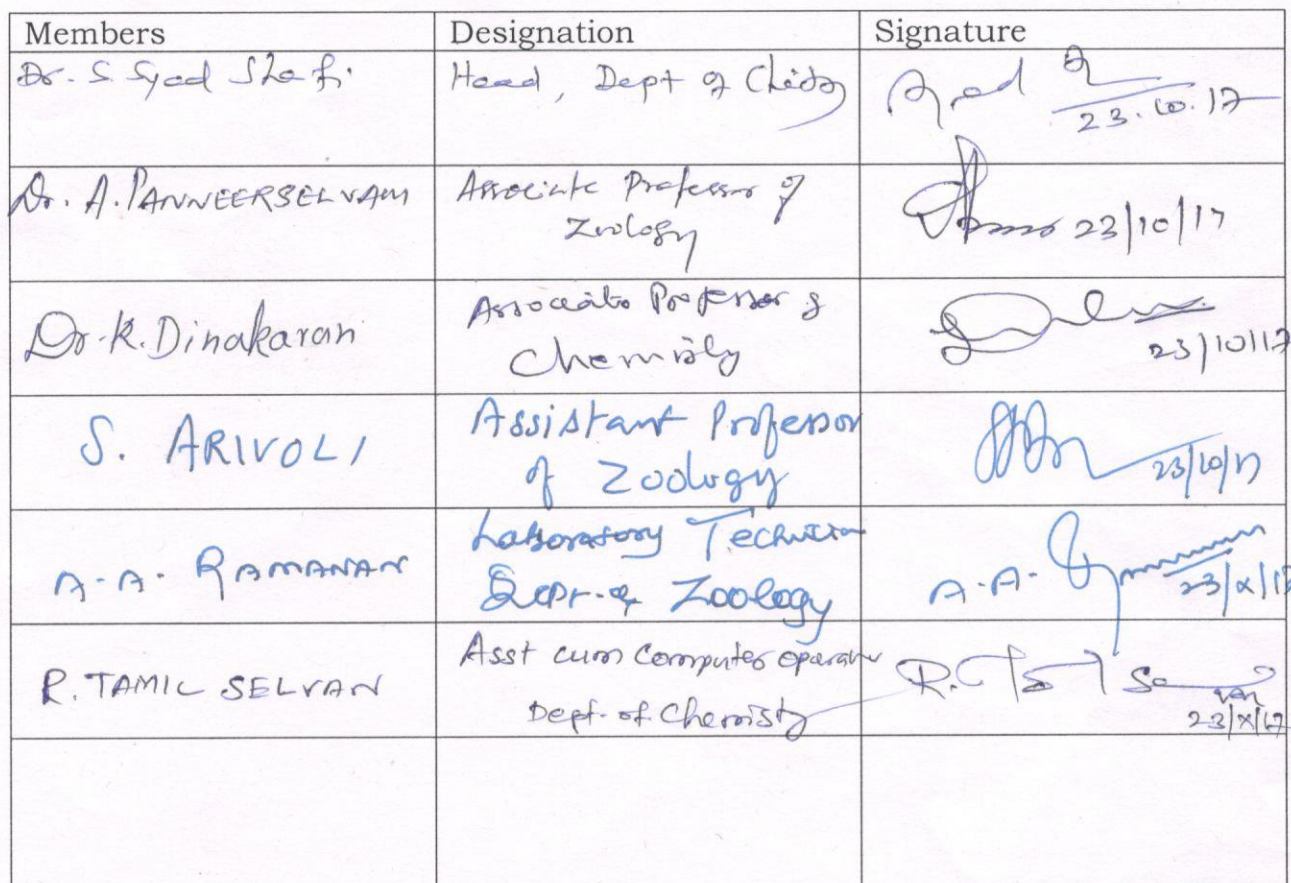 Members Designation Signature
Dr. S Syed Shafi. Head, Dept of 23.10.17
Dr. A. PANNEERSELVAM Associate Professor of
Zoology 23/10/17
Dr. K. Dinakaran Associate Professor of
Chemistry 23/10/17
S. ARIVOLI Assistant Professor
of Zoology 23/10/17
A. A. RAMANAN Laboratory Technician A. A.
Dept. of Zoology 23/X/17
R. TAMIL SELVAN Asst cum Computer operator R.
Dept. of Chemisty 23/X/17